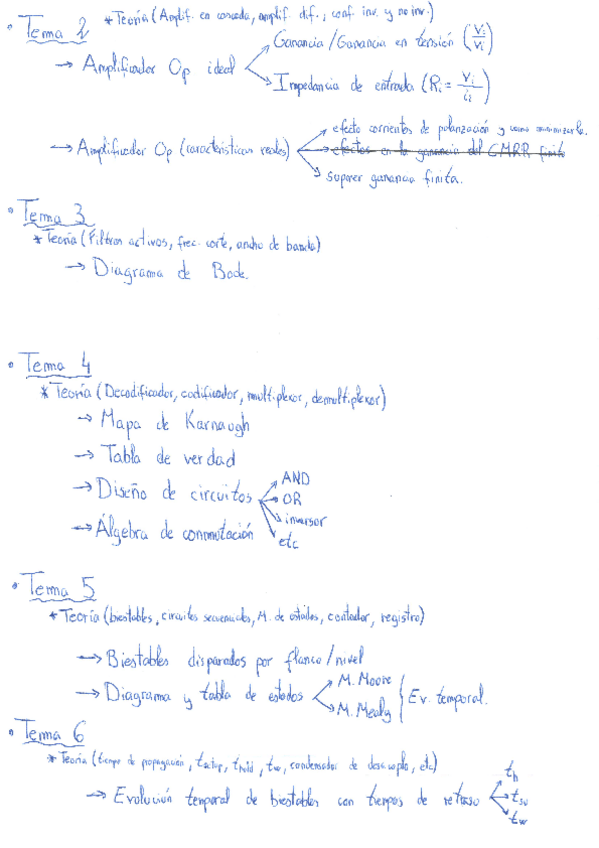 • Tema 2 * Teoría (Amplif. en cascada, amplif. dif., conf. inv. y no inv.)
→ Amplificador Op ideal
Ganancia / Ganancia en tensión
Impedancia de entrada (Ri = Vi/ii)
→ Amplificador Op (características reales)
efecto corrientes de polarización y como minimizarla.
efectos en la ganancia del CMRR finito
suponer ganancia finita.
• Tema 3
* Teoría (Filtros activos, frec. corte, ancho de banda)
→ Diagrama de Bode.
• Tema 4
* Teoría (Decodificador, codificador, multiplexor, demultiplexor)
→ Mapa de Karnaugh
→ Tabla de verdad
→ Diseño de circuitos
AND
OR
inversor
etc
→ Álgebra de conmutación
• Tema 5
* Teoría (biestables, circuitos secuenciales, M. de estados, contador, registro)
→ Biestables disparados por flanco/nivel
→ Diagrama y tabla de estados
M. Moore
M. Mealy
Ev. temporal.
• Tema 6
* Teoría (tiempo de propagación, tsetup, thold, tw, condensador de desacoplo, etc)
→ Evolución temporal de biestables con tiempos de retraso
th
tsu
tw